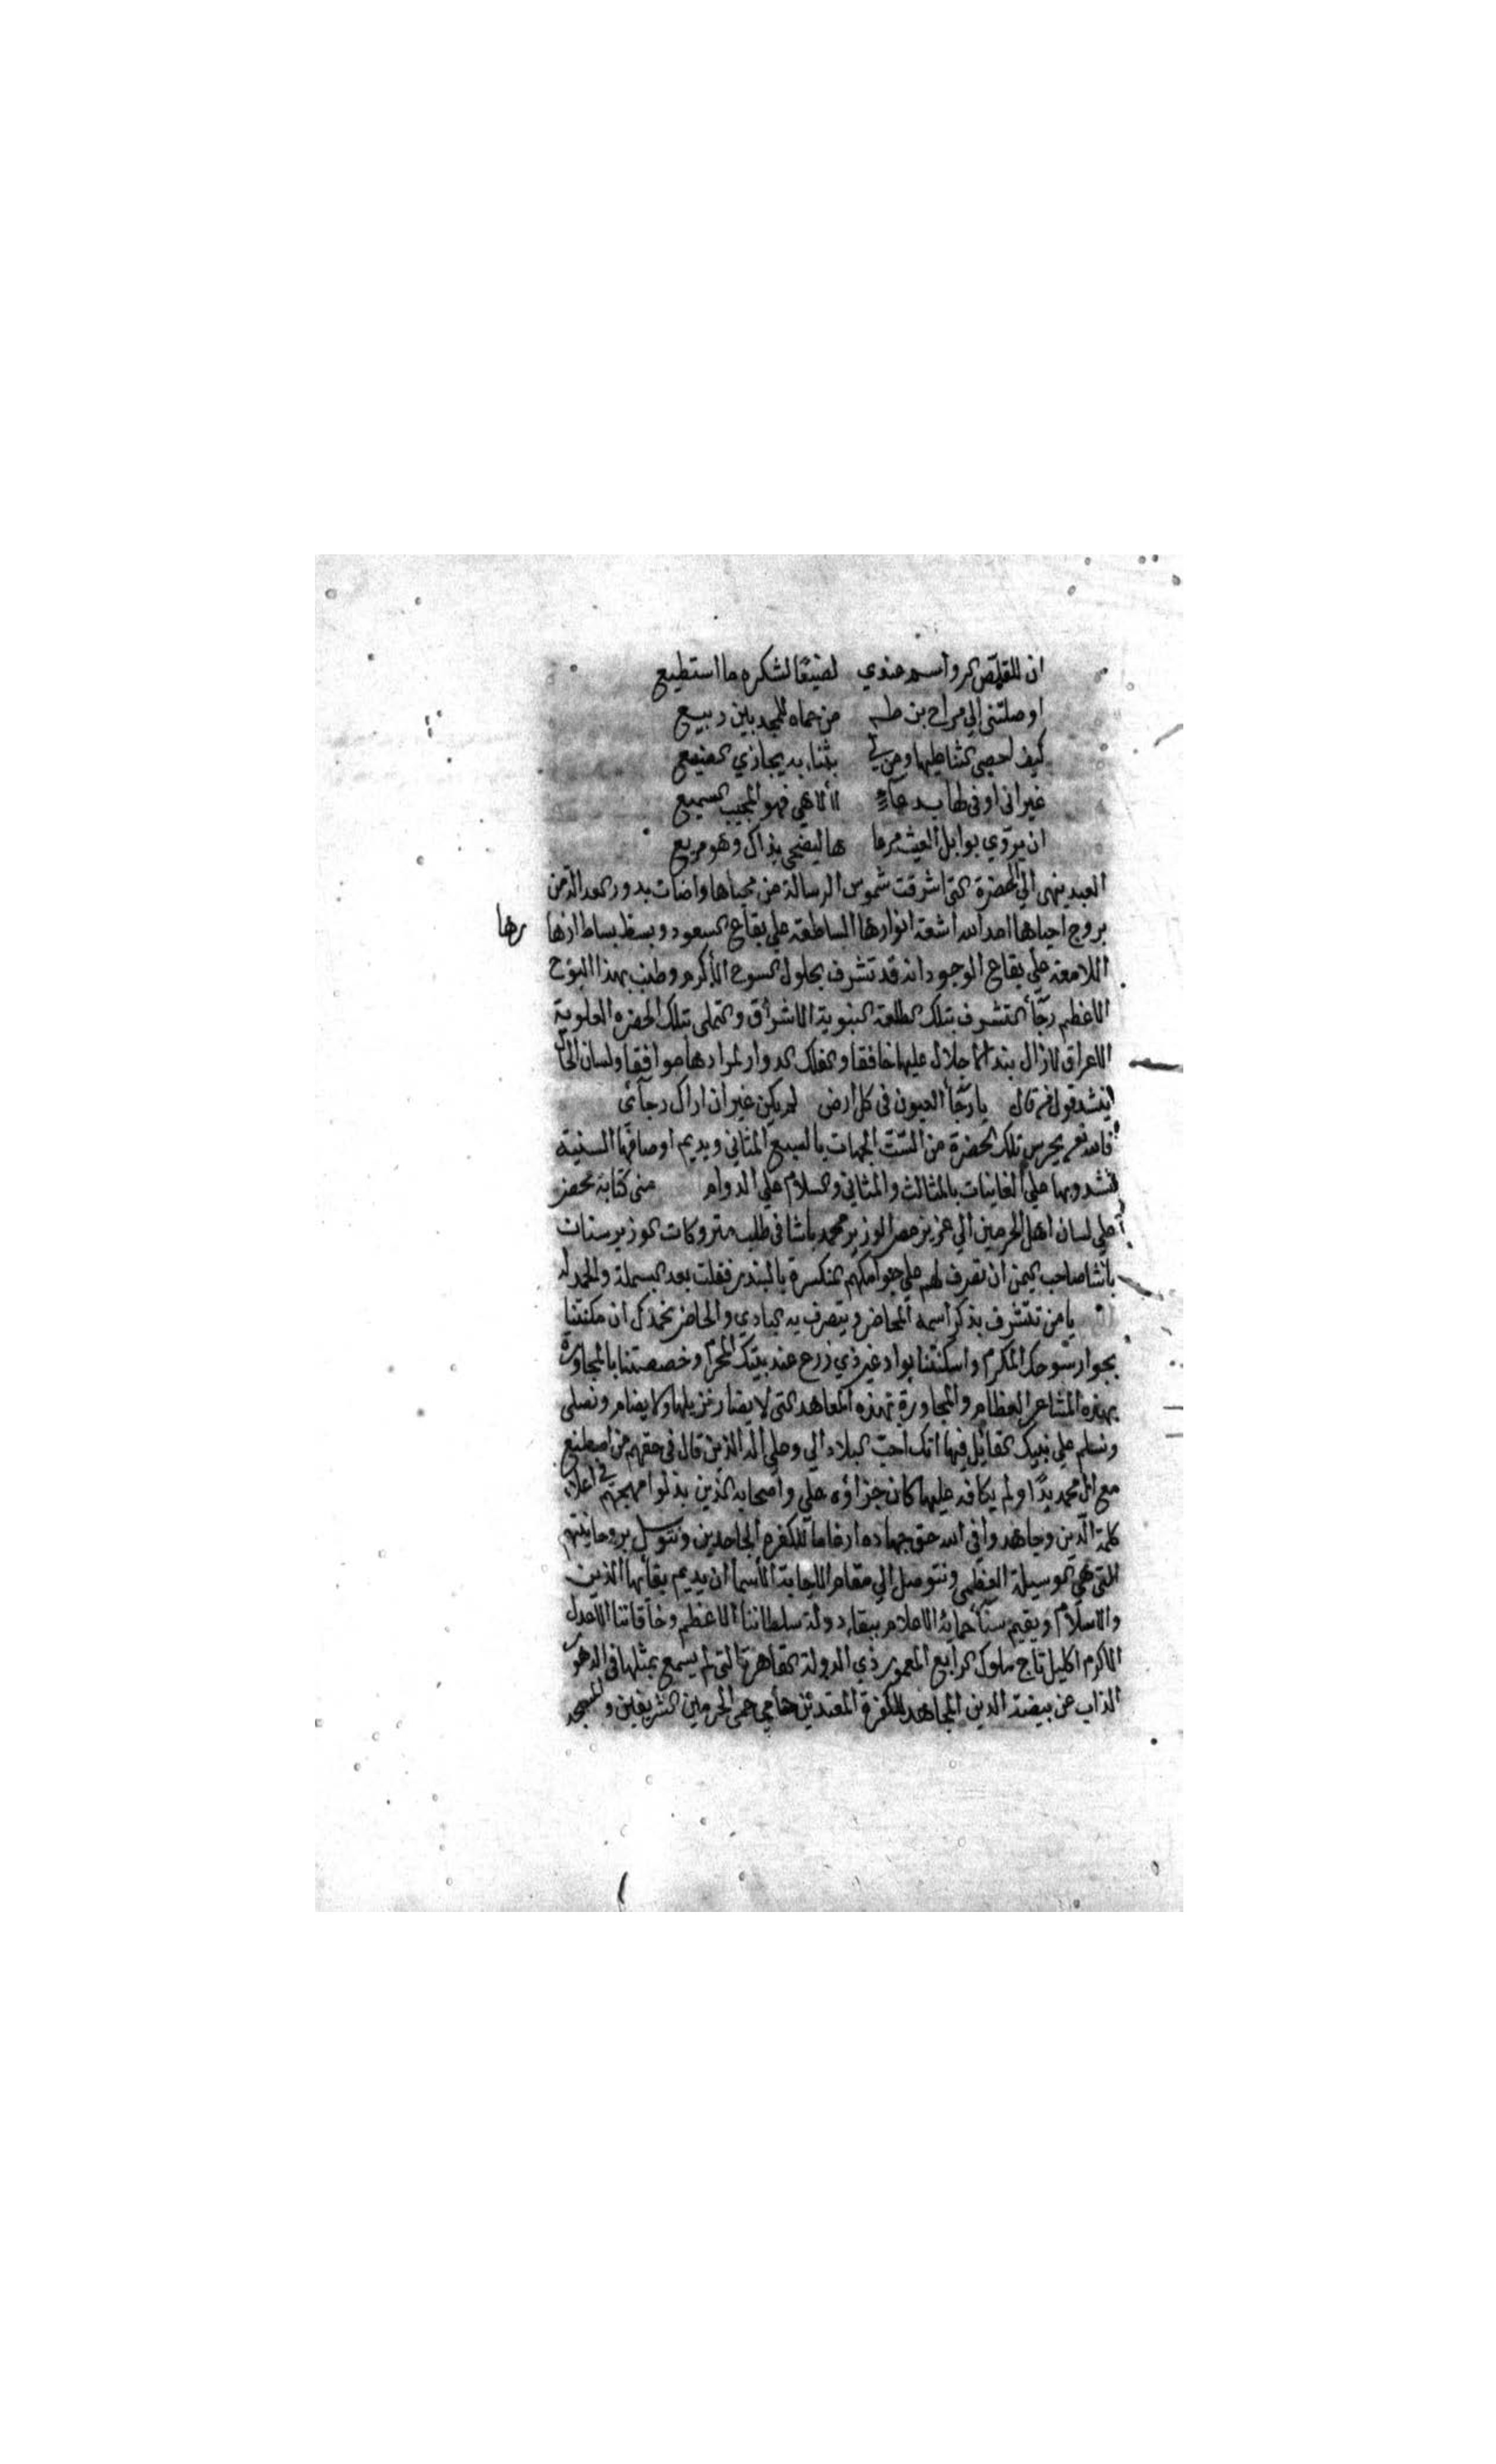 ان للقلاص الرواسم عندي لصنيعا لشكره ما استطيع
اوصلتني الي مراح بن طه من حماه للمجدبين ربيع
كيف احصي الثنا عليها ومن لي بثناء به يجازي الصنيع
غير اني اوفي لها بدعآء لالاهي فهو المجيب السميع
ان يروي بوابل الغيث مرعا ها ليضحي بذاك وهو مريع
العبد ينهي الي الحضرة التي اشرقت شموس الرسالة من محياها واضات بدور العدالة من
بروج احياها امد الله اشعة انوارها الساطعة علي بقاع السعود وبسط بساط ازها رها
اللامعة علي بقاع الوجود انه قد تشرف بحلول السوح الأكرم وطنب بهذا البوح
الاعظم رجآ التشرف بتلك الطلعة النبوية الاشراق والتملي بتلك الحضرة العلوية
الاعراق لازال بند الاجلال عليها خافقا والفلك الدوار لمرادها موافقا ولسان الحال
ينشد قول من قال يا رجآ العيون في كل ارض لم يكن غير ان اراك رجآئي
فالله تعم يحرس تلك الحضرة من الست الجهات بالسبع المثاني ويديم اوصافها السنية
تشدو بها علي الغانيات بالمثالث والمثاني والسلام علي الدوام مني كتابة محضر
علي لسان اهل الحرمين الي عزيز مصر الوزير محمد باشا في طلب متروكات الوزير سنان
باشا صاحب اليمن ان تصرف لهم علي جوامكهم المنكسرة بالبندر فقلت بعد البسملة والحمدله
يا من تتشرف بذكر اسمه المحاضر ويتصرف به البادي والحاضر نحمدك ان مكنتنا
بجوار سوحك المكرم واسكنتنا بواد غير ذي زرع عند بيتك المحرم وخصصتنا بالمجاورة
بهذه المشاعر العظام والمجاورة بهذه المعاهد التي لا يضار نزيلها ولا يضام ونصلي
ونسلم علي نبيك القائل فيها انك احب البلاد الي وعلي اله الذين قال في حقهم من اصطنع
مع ال محمد يدا ولم يكافه عليها كان جزاؤه علي واصحابه الذين بذلوا مهجهم في اعلاء
كلمة الدين وجاهدوا في الله حق جهاده ارغاما للكفره الجاحدين ونتوسل بروحانيتهم
التي هي الوسيلة العظمي ونتوصل الي مقام الاجابة الأسما ان يديم بقآئها الدين
والاسلام ويقيم سنآ حماية الاعلام ببقاء دولة سلطاننا الاعظم وخاقاننا الاعدل
الاكرم اكليل تاج ملوك الرابع المعمور ذي الدولة القاهرة التي لم يسمع بمثلها في الدهور
الذاب عن بيضة الدين المجاهد للكفرة المعتدين حامي حمي الحرمين الشريفين والمسجد